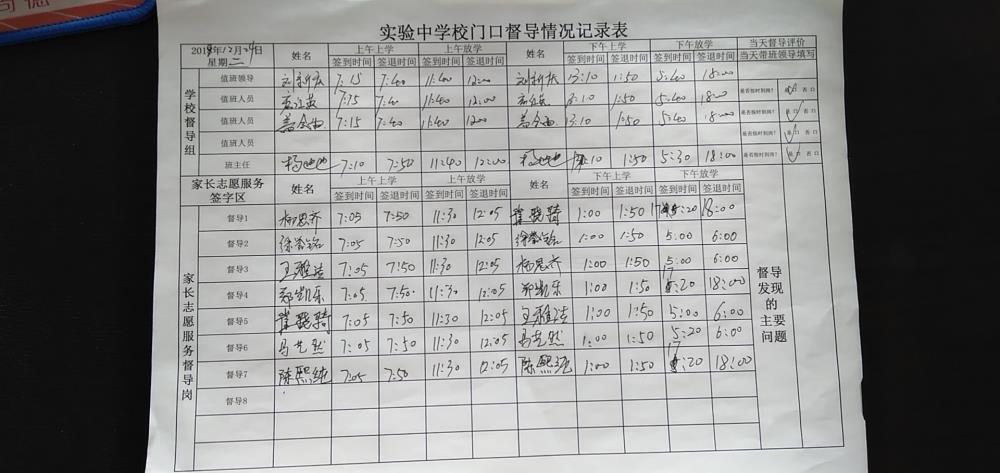 实验中学校门口督导情况记录表
2018年12月4日 星期二 姓名 上午上学 上午放学 姓名 下午上学 下午放学 当天督导评价
签到时间 签退时间 签到时间 签退时间 签到时间 签退时间 签到时间 签退时间 当天带班领导填写
学校督导组
值班领导 7:15 7:40 11:40 12:00 13:10 1:50 5:40 18:00
值班人员 7:15 7:40 11:40 12:00 1:50 5:40 18:00 是否按时到岗? 是 否口
值班人员 7:15 7:40 11:40 1200 13:10 1:50 5:40 1800 是否按时到岗? 是口 否口
值班人员 是否按时到岗? 是口 否口
班主任 7:10 7:50 11:40 12:00 1:50 5:30 18:00 是否按时到岗? 是口 否口
家长志愿服务签字区 姓名 上午上学 上午放学 姓名 下午上学 下午放学
签到时间 签退时间 签到时间 签退时间 签到时间 签退时间 签到时间 签退时间
家长志愿服务督导岗
督导1 杨思齐 7:05 7:50 11:30 12:05 1:00 1:50 18:00
督导2 7:05 7:50 11:30 12:05 1:00 1:50 5:00 6:00
督导3 王雅洁 7:05 7:50 11:30 12:05 杨思齐 1:00 1:50 5:00 6:00
督导4 郑凯乐 7:05 7:50 11:30 12:05 郑凯乐 1:00 1:50 17:20 18:00
督导5 7:05 7:50 11:30 12:05 王雅洁 1:00 1:50 5:00 6:00
督导6 马艺然 7:05 7:50 11:30 12:05 马艺然 1:00 1:50 5:20 6:00
督导7 陈熙纯 7:05 7:50 11:30 12:05 陈熙纯 1:00 1:50 17:20 18:00
督导8
督导发现的主要问题